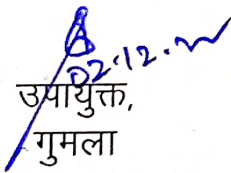 02.12.
उपायुक्त,
गुमला